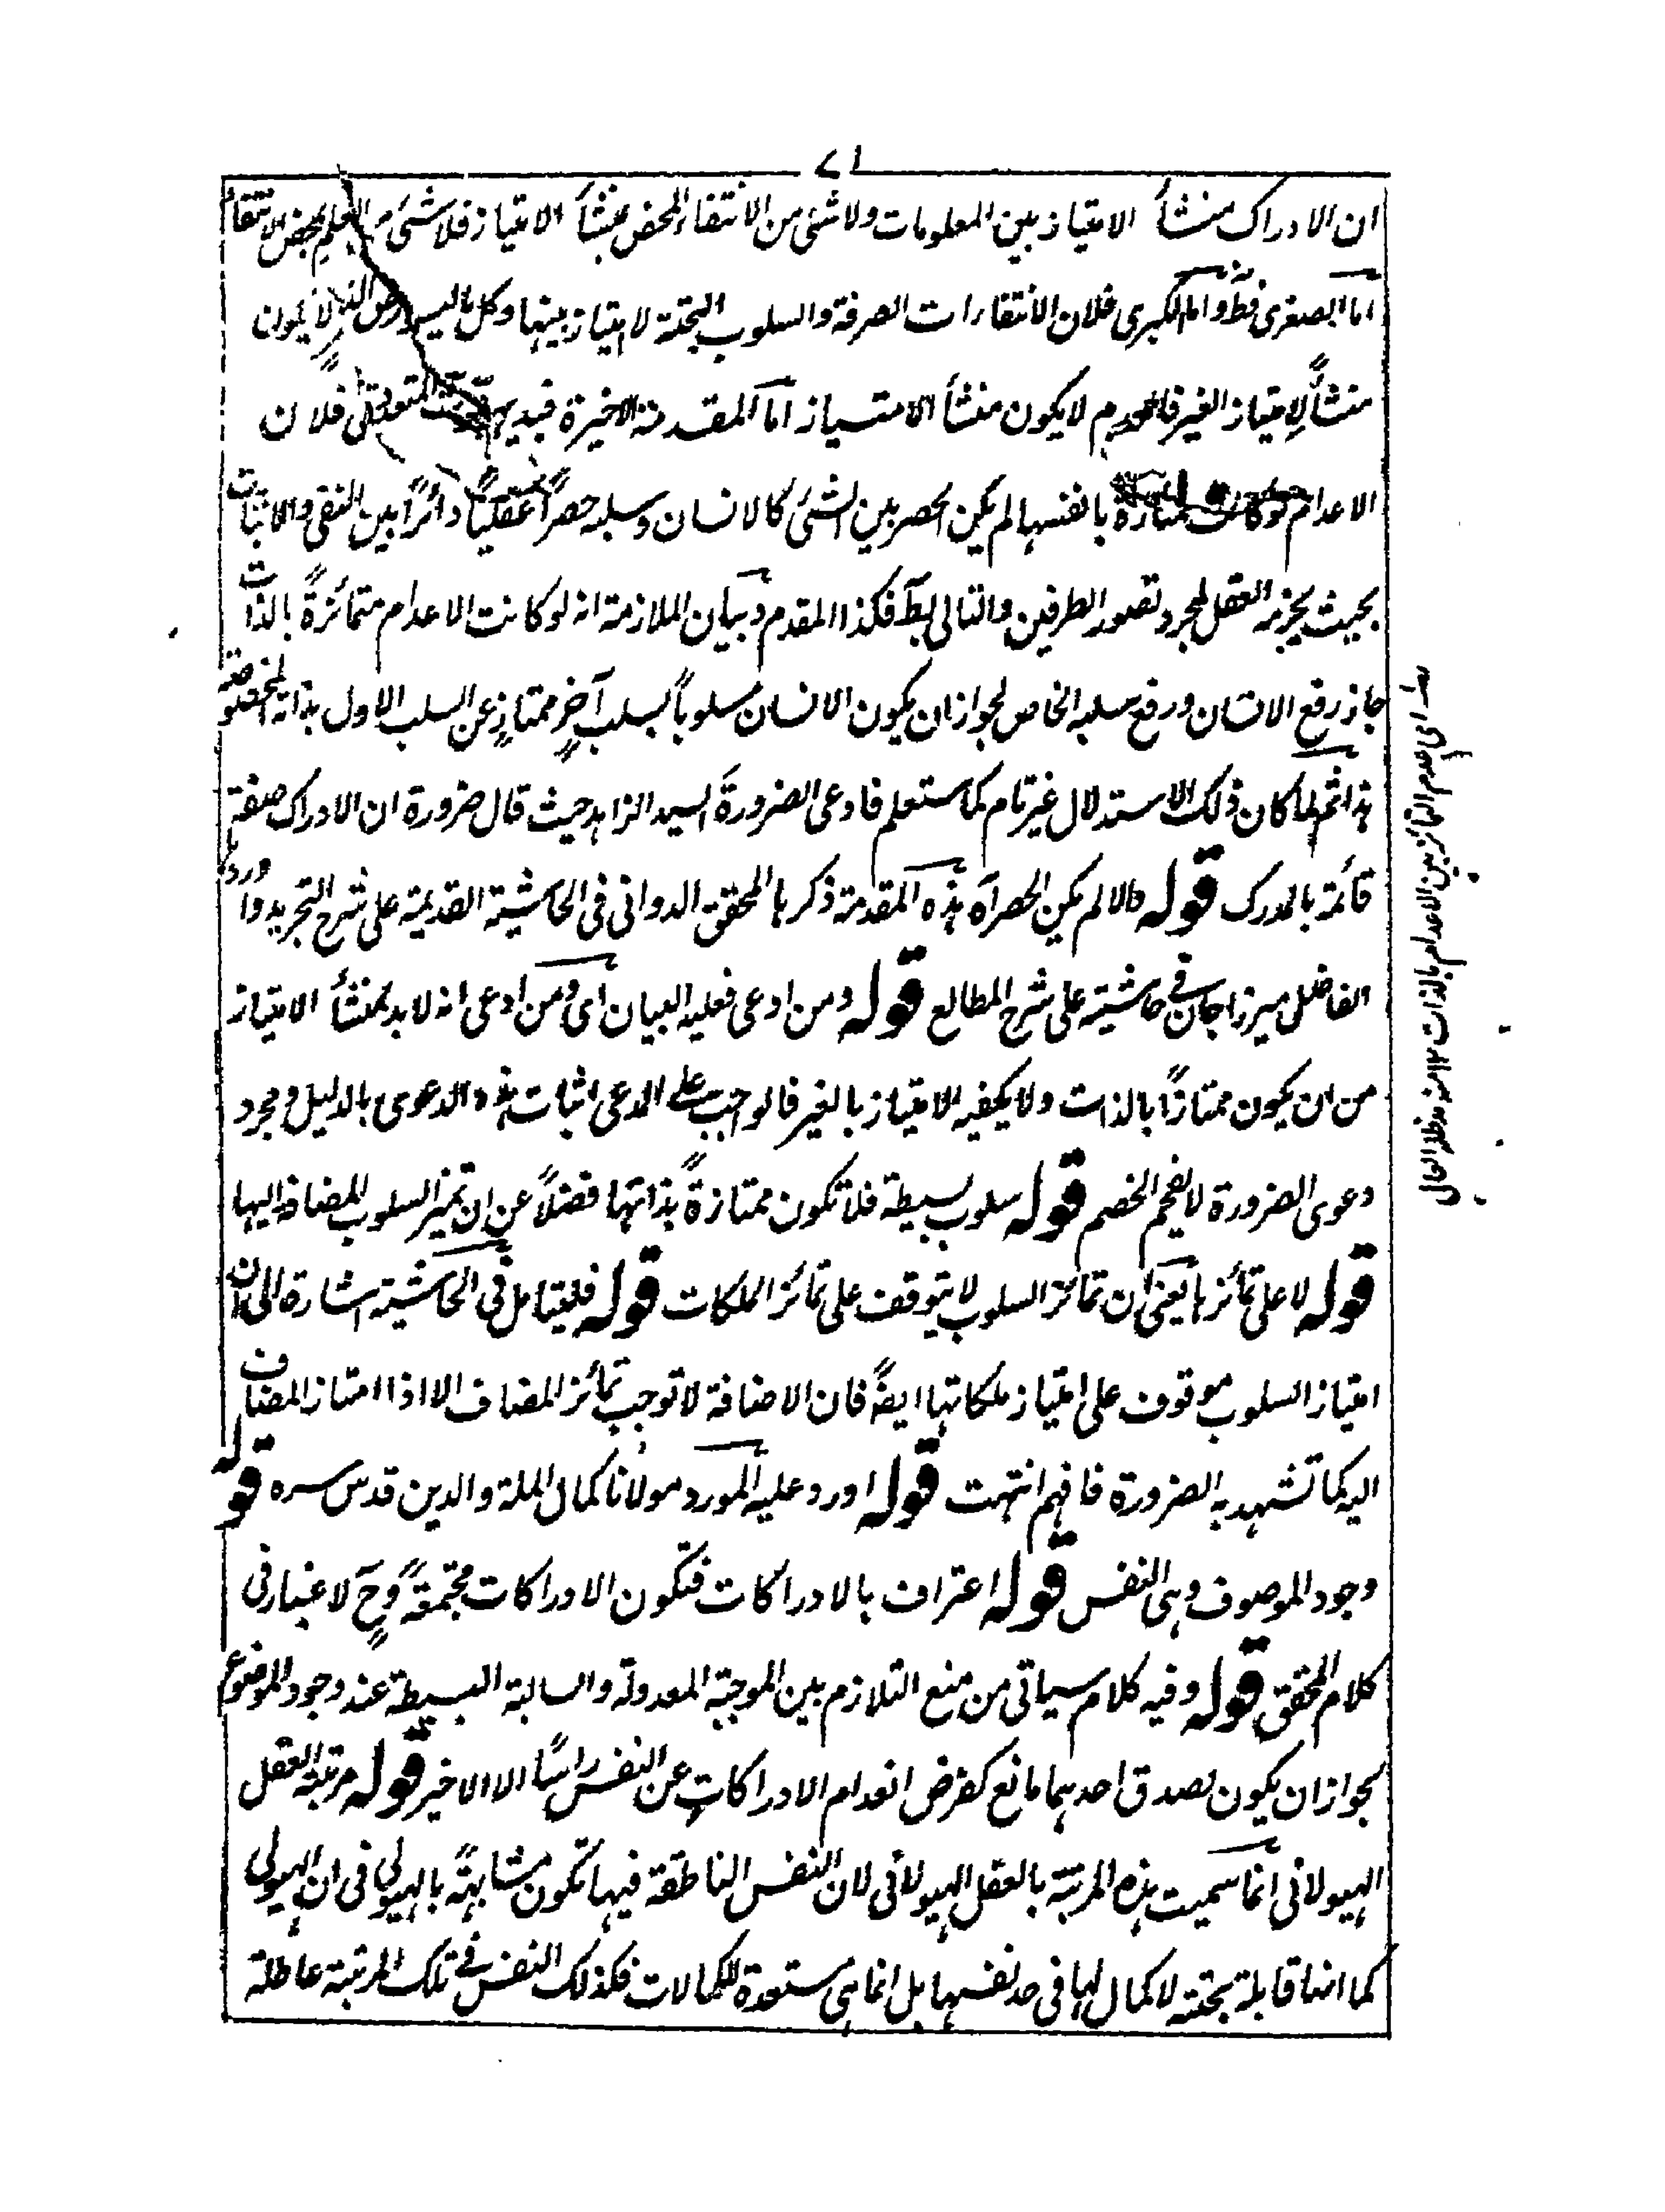 ٧١
ان الادراك منشأ الامتياز بين المعلومات ولا شئ من الانتفاء المحض بمنشأ الامتياز فلا شئ من العلم بمحض الانتفاء
اما الصغرى فظ واما الكبرى فلان الانتفاءات الصرفة والسلوب البحتة لا امتياز بينها وكل ما ليس لا يكون
منشأً لامتياز الغير فالعدم لا يكون منشأ الامتياز اما المقدمة الاخيرة فبديهية فلان
الاعدام لو كانت ممتازة بانفسها لم يكن الحصر بين الشئ كالانسان وسلبه حصراً عقلياً دائراً بين النفى والاثبات
بحيث يجزم العقل بمجرد تصور الطرفين والتالى بط فكذا المقدم وبيان الملازمة انه لو كانت الاعدام متمائزةً بالذات
جاز رفع الانسان ورفع سلبه الخاص لجواز ان يكون الانسان مسلوباً بسلب آخرٍ ممتازٍ عن السلب الاول بذاته المخصوصة
هذا ثم لما كان ذلك الاستدلال غير تام كما ستعلم فادعى الضرورةَ السيد الزاهد حيث قال ضرورة ان الادراك صفة
قائمة بالمدرك قوله والا لم يكن الحصر آه هذه المقدمة ذكرها المحقق الدوانى فى الحاشية القديمة على شرح التجريد واوردها
الفاضل ميرزا جان فى حاشية على شرح المطالع قوله ومن ادعى فعليه البيان اى ومن ادعى انه لا بد لمنشأ الامتياز
من ان يكون ممتازاً بالذات ولا يكفيه الامتياز بالغير فالواجب على المدعى اثبات هذه الدعوى بالدليل ومجرد
دعوى الضرورة لا يفحم الخصم قوله سلوب بسيطة فلا تكون ممتازةً بذاتها فضلاً عن ان تميز السلوب المضافة اليها
قوله لا على تمائزها يعنى ان تمائز السلوب لا يتوقف على تمائز الملكات قوله فليتامل فى الحاشية اشارة الى ان
امتياز السلوب موقوف على امتياز ملكاتها ايضاً فان الاضافة لا توجب تمائز المضاف الا اذا امتاز المضاف
اليه كما تشهد به الضرورة فافهم انتهت قوله اورد عليه المورد مولانا كمال الملة والدين قدس سره قوله
وجود الموصوف وهى النفس قوله اعتراف بالادراكات فتكون الادراكات مجتمعةً وح لا غبار فى
كلام المحقق قوله وفيه كلام سياتى من منع التلازم بين الموجبة المعدولة والسالبة البسيطة عند وجود الموضوع
لجواز ان يكون لصدق احدهما مانع كفرض انعدام الادراكات عن النفس راسًا الا الاخير قوله مرتبة العقل
الهيولانى انما سميت هذه المرتبة بالعقل الهيولانى لان النفس الناطقة فيها تكون مشابهةً بالهيولى فى ان الهيولى
كما انها قابلة بحتة لا كمال لها فى حد نفسها بل انما هى مستعدة للكمالات فكذلك النفس فى تلك المرتبة عاطلة
اى عدم التمائز بين الاعدام بالذات ١٢ منه مد ظله العالى